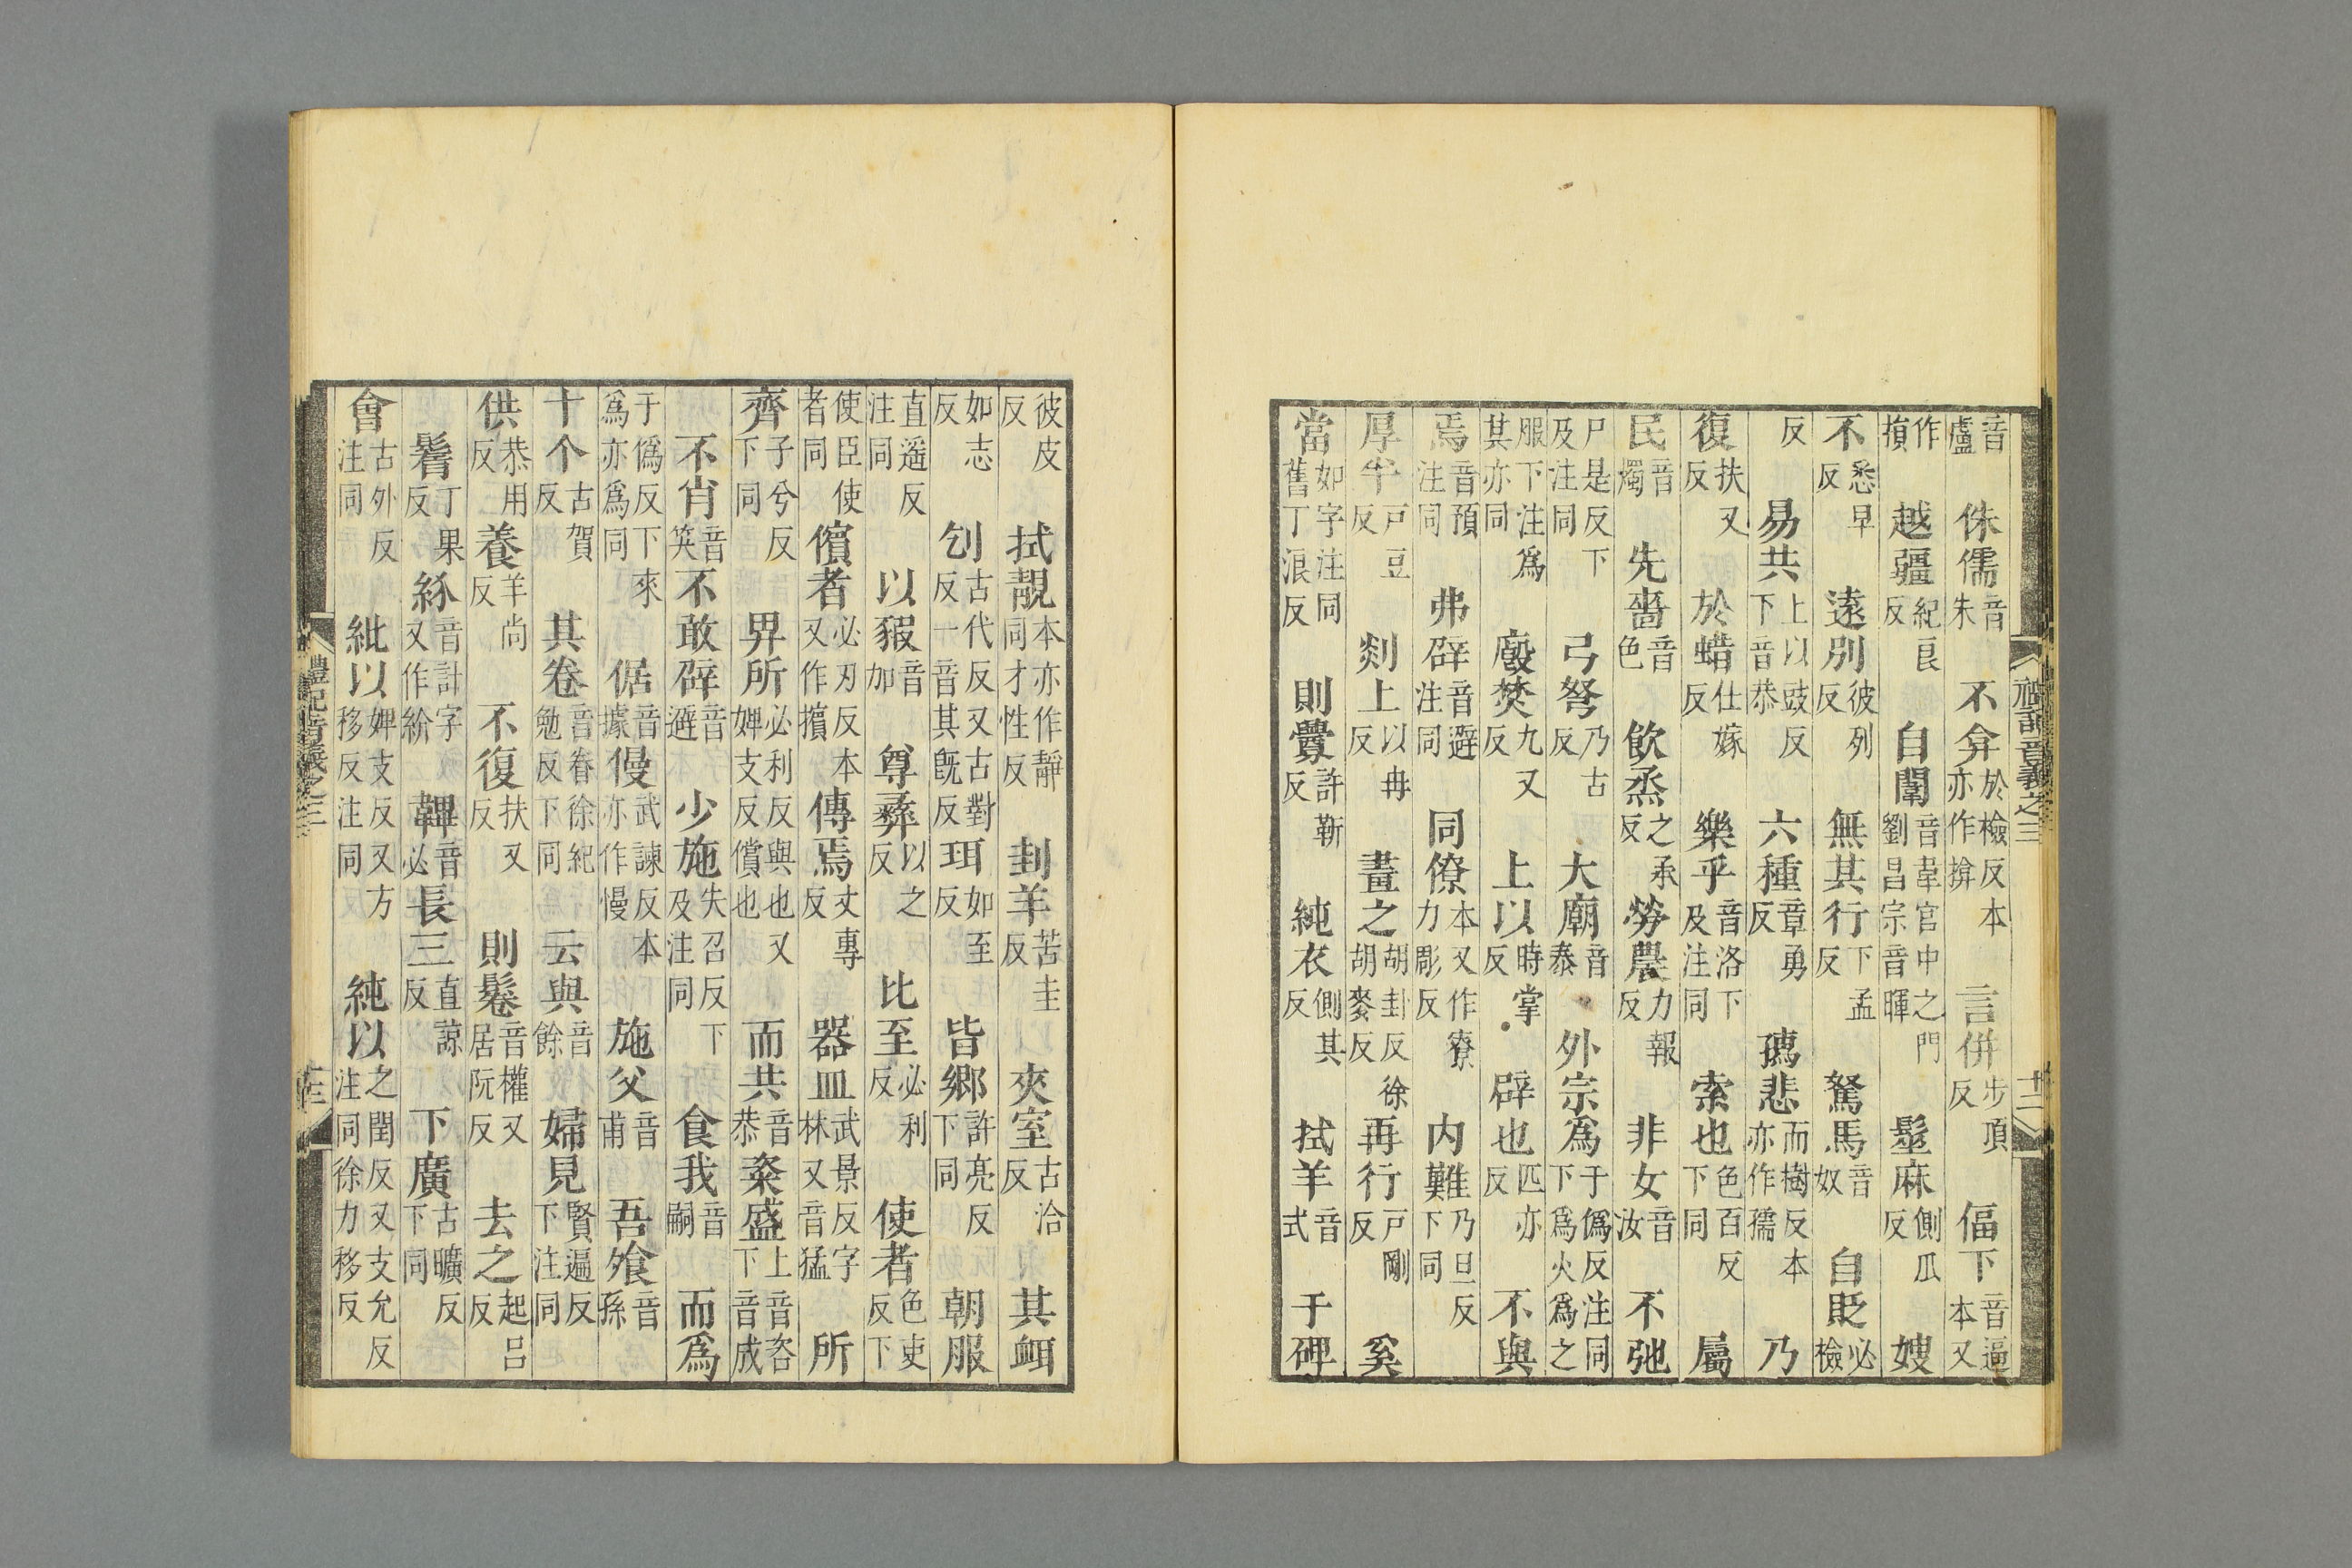 音盧 侏儒音朱 不弇於檢反本亦作揜 言併步項反 偪下音逼本又
作損 越疆紀良反 自闈音韋宮中之門劉昌宗音暉 髽麻側瓜反 嫂
不悉早反 遠別彼列反 無其行下孟反 駑馬音奴 自貶必檢
反 易共上以豉反下音恭 六種章勇反 悲而樹反本亦作孺 乃
復扶又反 於蜡仕嫁反 樂乎音洛下及注同 索也色百反下同 屬
民音燭 先嗇音色 飲烝之承反 勞農力報反 非女音汝 不弛
尸是反下及注同 弓弩乃古反 大廟音泰 外宗爲于僞反注同下爲火爲之
服下注爲其亦同 廏焚九又反 上以時掌反 辟也匹亦反 不與
焉音預注同 弗辟音避注同 同僚本又作寮力彫反 内難乃旦反下同
厚半戶豆反 剡上以冉反 畫之胡卦反徐胡麥反 再行戶剛反 奚
當如字注同舊丁浪反 則釁許靳反 純衣側其反 拭羊音式 于碑
禮記音義之三 十二
彼皮反 拭靚本亦作靜同才性反 刲羊苦圭反 夾室古洽反 其衈
如志反 刉古代反又古對反一音其旣反 珥如至反 皆鄉許亮反下同 朝服
直遥反注同 以豭音加 尊彝以之反 比至必利反 使者色吏反下
使臣使者同 儐者必刃反本又作擯 傳焉丈專反 器皿武景反字林又音猛 所
齊子兮反下同 畀所必利反與也又婢支反償也 而共音恭 粢盛上音咨下音成
不肖音笑 不敢辟音避 少施失召反下及注同 食我音嗣 而爲
于僞反下來爲亦爲同 倨音據 僈武諫反本亦作慢 施父音甫 吾飧音孫
十个古賀反 其卷音眷徐紀勉反下同 云與音餘 婦見賢遍反下注同
供恭用反 養羊尚反 不復扶又反 則鬈音權又居阮反 去之起呂反
鬌丁果反 紒音計字又作紛 韠音必 長三直諒反 下廣古曠反下同
會古外反注同 紕以婢支反又方移反注同 純以之閏反又支允反注同徐力移反
禮記音義之三 十三